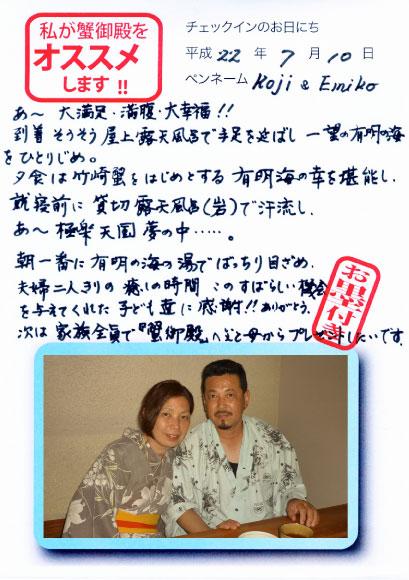 私が蟹御殿を
オススメ
します!!
チェックインのお日にち
平成 22 年 7 月 10 日
ペンネーム Koji & Emiko
あ〜 大満足・満腹・大幸福!!
到着そうそう屋上露天風呂で手足を延ばし 一望の有明の海
をひとりじめ。
夕食は竹崎蟹をはじめとする 有明海の幸を堪能し、
就寝前に 貸切露天風呂(岩)で汗流し、
あ〜 極楽天国 夢の中・・・・・。
朝一番に 有明の海の湯でばっちり目ざめ、
夫婦二人きりの 癒しの時間 このすばらしい機会
を与えてくれた 子ども達に 感謝!! ありがとう。
次は 家族全員で『蟹御殿』へ 父と母からプレゼントしたいです。
お墨付き